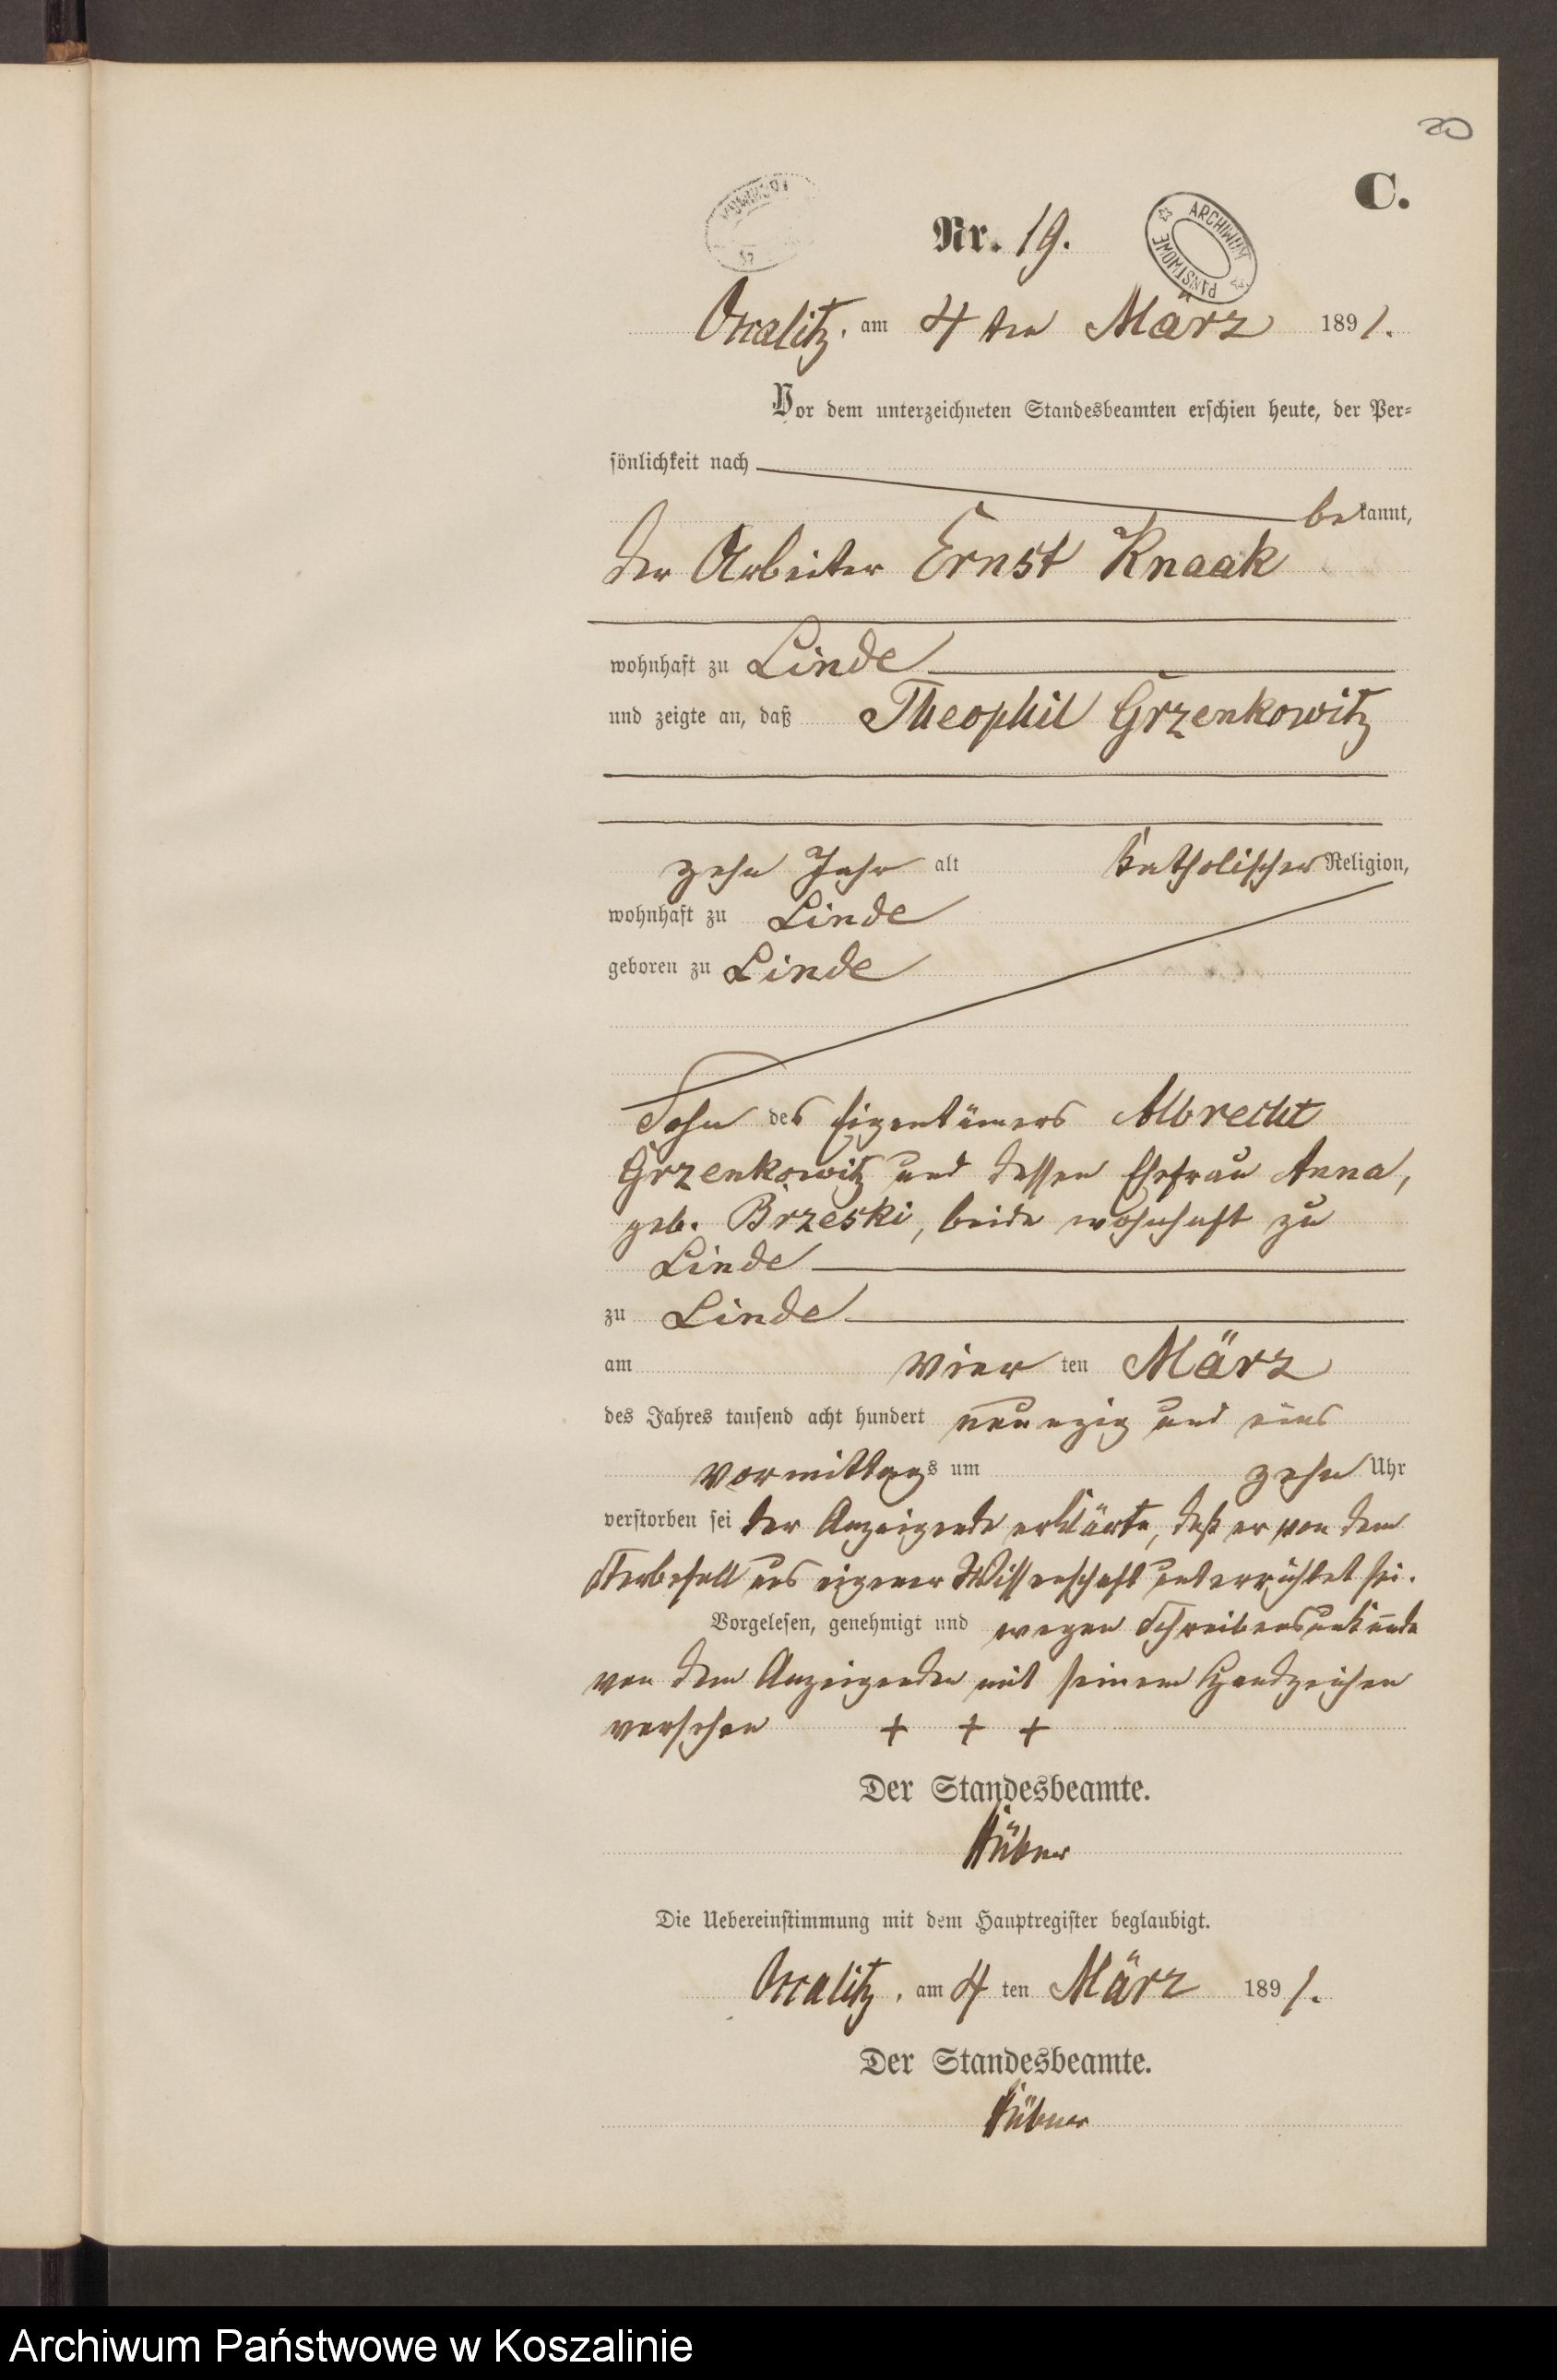 20
C.
Nr. 19.
ARCHIWUM PAŃSTWOWE
Occalitz, am 4 ten März 1891.
Vor dem unterzeichneten Standesbeamten erschien heute, der Per-
sönlichkeit nach
bekannt,
der Arbeiter Ernst Knaak
wohnhaft zu Linde
und zeigte an, daß Theophil Grzenkowitz
zehn Jahr alt katholischer Religion,
wohnhaft zu Linde
geboren zu Linde
Sohn des Eigentümers Albrecht
Grzenkowitz und dessen Ehefrau Anna,
geb. Brzeski, beide wohnhaft zu
Linde
zu Linde
am vier ten März
des Jahres tausend acht hundert neunzig und eins
vormittags um zehn Uhr
verstorben sei der Anzeigende erklärte, daß er von dem
Sterbefall aus eigener Wissenschaft unterrichtet sei.
Vorgelesen, genehmigt und wegen Schreibensunkunde
von dem Anzeigenden mit seinem Handzeichen
versehen + + +
Der Standesbeamte.
Die Uebereinstimmung mit dem Hauptregister beglaubigt.
Occalitz, am 4 ten März 1891.
Der Standesbeamte.
Archiwum Państwowe w Koszalinie